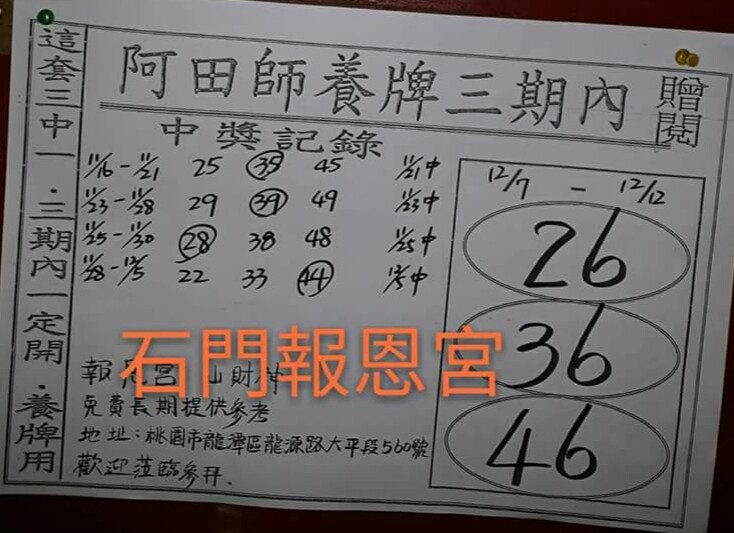 阿田師養牌三期內
贈閱
這套三中一．三期內一定開．養牌用
中獎記錄
11/16-11/21 25 35 45 11/21中
11/23-11/28 29 39 49 11/23中
11/25-11/30 28 38 48 11/25中
11/28-12/5 22 33 44 12/5中
12/7 - 12/12
26
36
46
石門報恩宮
報恩宮 山財神
免費長期提供參考
地址:桃園市龍潭區龍源路大平段560號
歡迎蒞臨參拜.